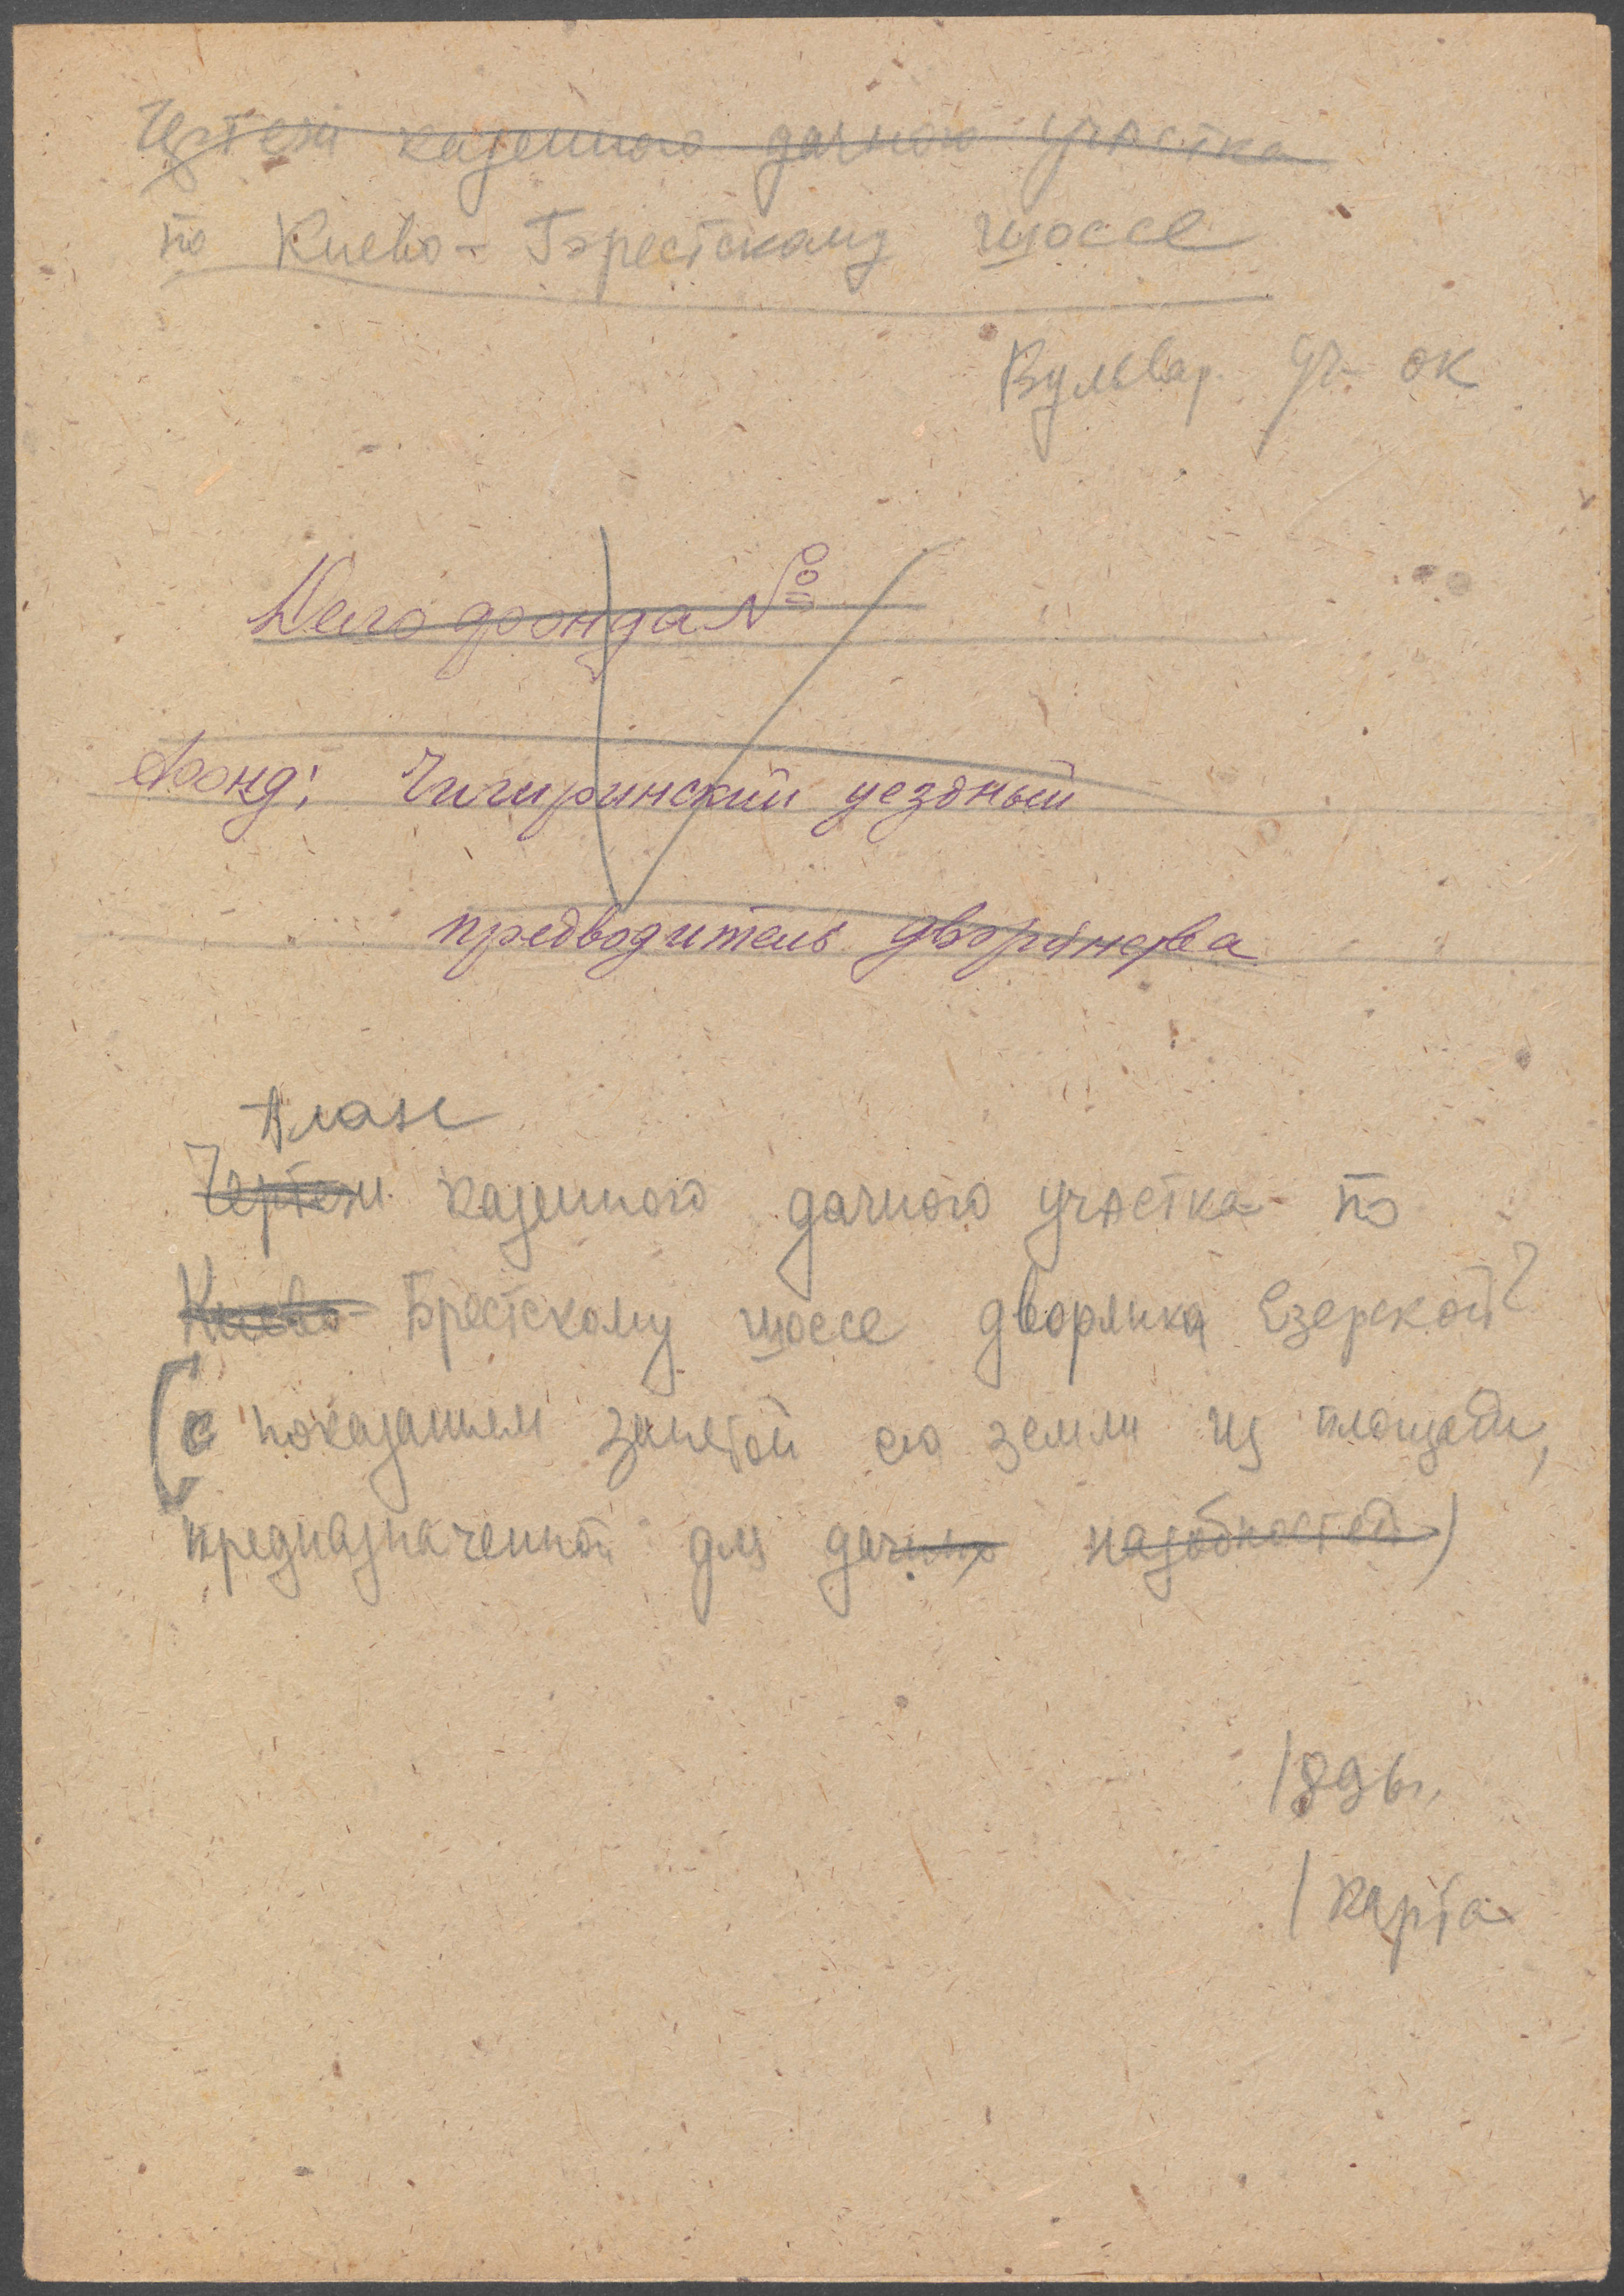 Чертеж казенного дачного участка
по Киево-Брестскому шоссе
Бульвар. уч-ок
Дело фонда №
Фонд: Чигиринский уездный
предводитель дворянства
План
Чертеж казенного дачного участка по
Киево-Брестскому шоссе дворянка Езерской?
(с показанием занятой ею земли из площади,
предназначенной для дачных надобностей)
1896г.
1 карта